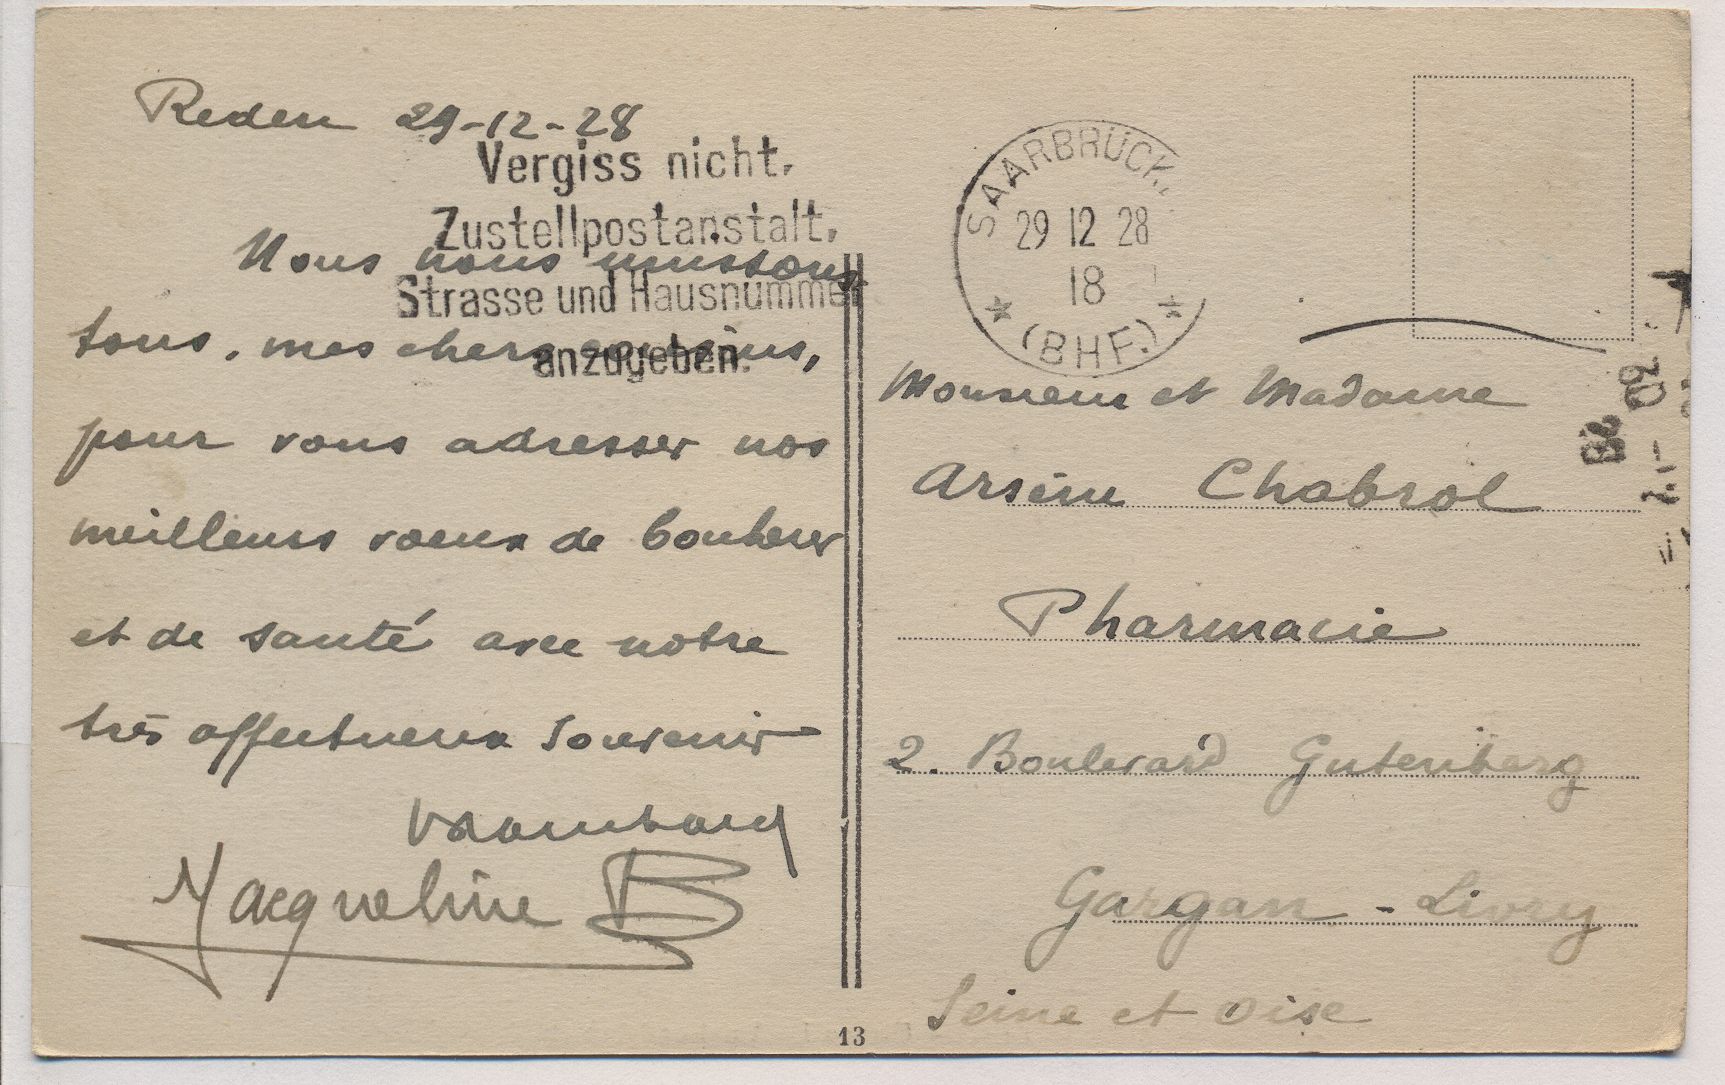 Reden 29-12-28
Vergiss nicht,
Zustellpostanstalt,
Strasse und Hausnummer
anzugeben.
Nous nous unissons
tous, mes chers cousins,
pour vous adresser nos
meilleurs voeux de bonheur
et de santé avec notre
très affectueux souvenir
Jacqueline B
SAARBRÜCK..
29 12 28
18
(BHF.)
Monsieur et Madame
Arsène Chabrol
Pharmacie
2. Boulevard Gutenberg
Gargan - Livry
Seine et Oise
13